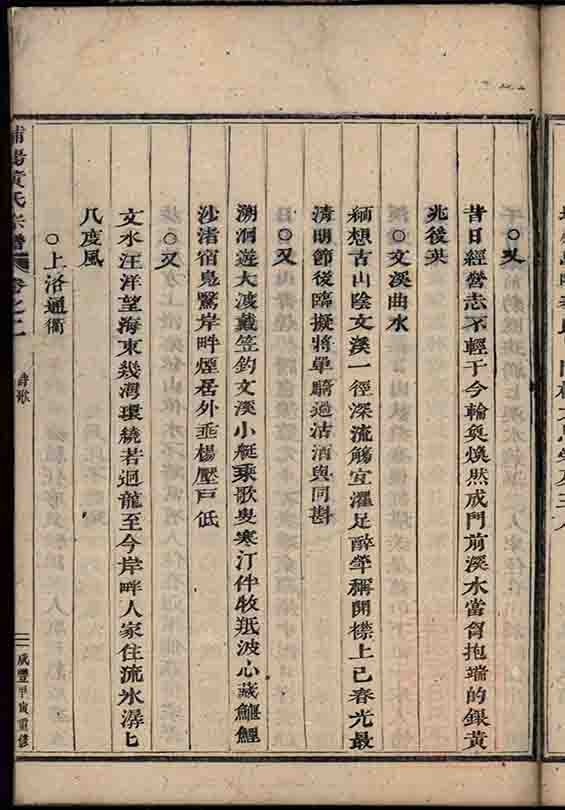 ○又
昔日經營志不輕于今輪奐煥然成門前溪水當胷抱端的銀黃
兆後英
○文溪曲水
緬想古山陰文溪一徑深流觴宜濯足醉竿稱開襟上已春光最
清明節後臨擬將單騎過沽酒與同斟
○又
溯洄遊大渡戴笠釣文溪小艇乘歌叟寒汀伴牧羝波心藏鱸鯉
沙渚宿鳧鷖岸畔煙居外垂楊壓戸低
○又
文水汪洋望海東幾灣環繞若迴龍至今岸畔人家住流水潺匕
八度風
○上洛通衢
浦陽黃氏宗譜 卷之二 詩歌 咸豐甲寅重修